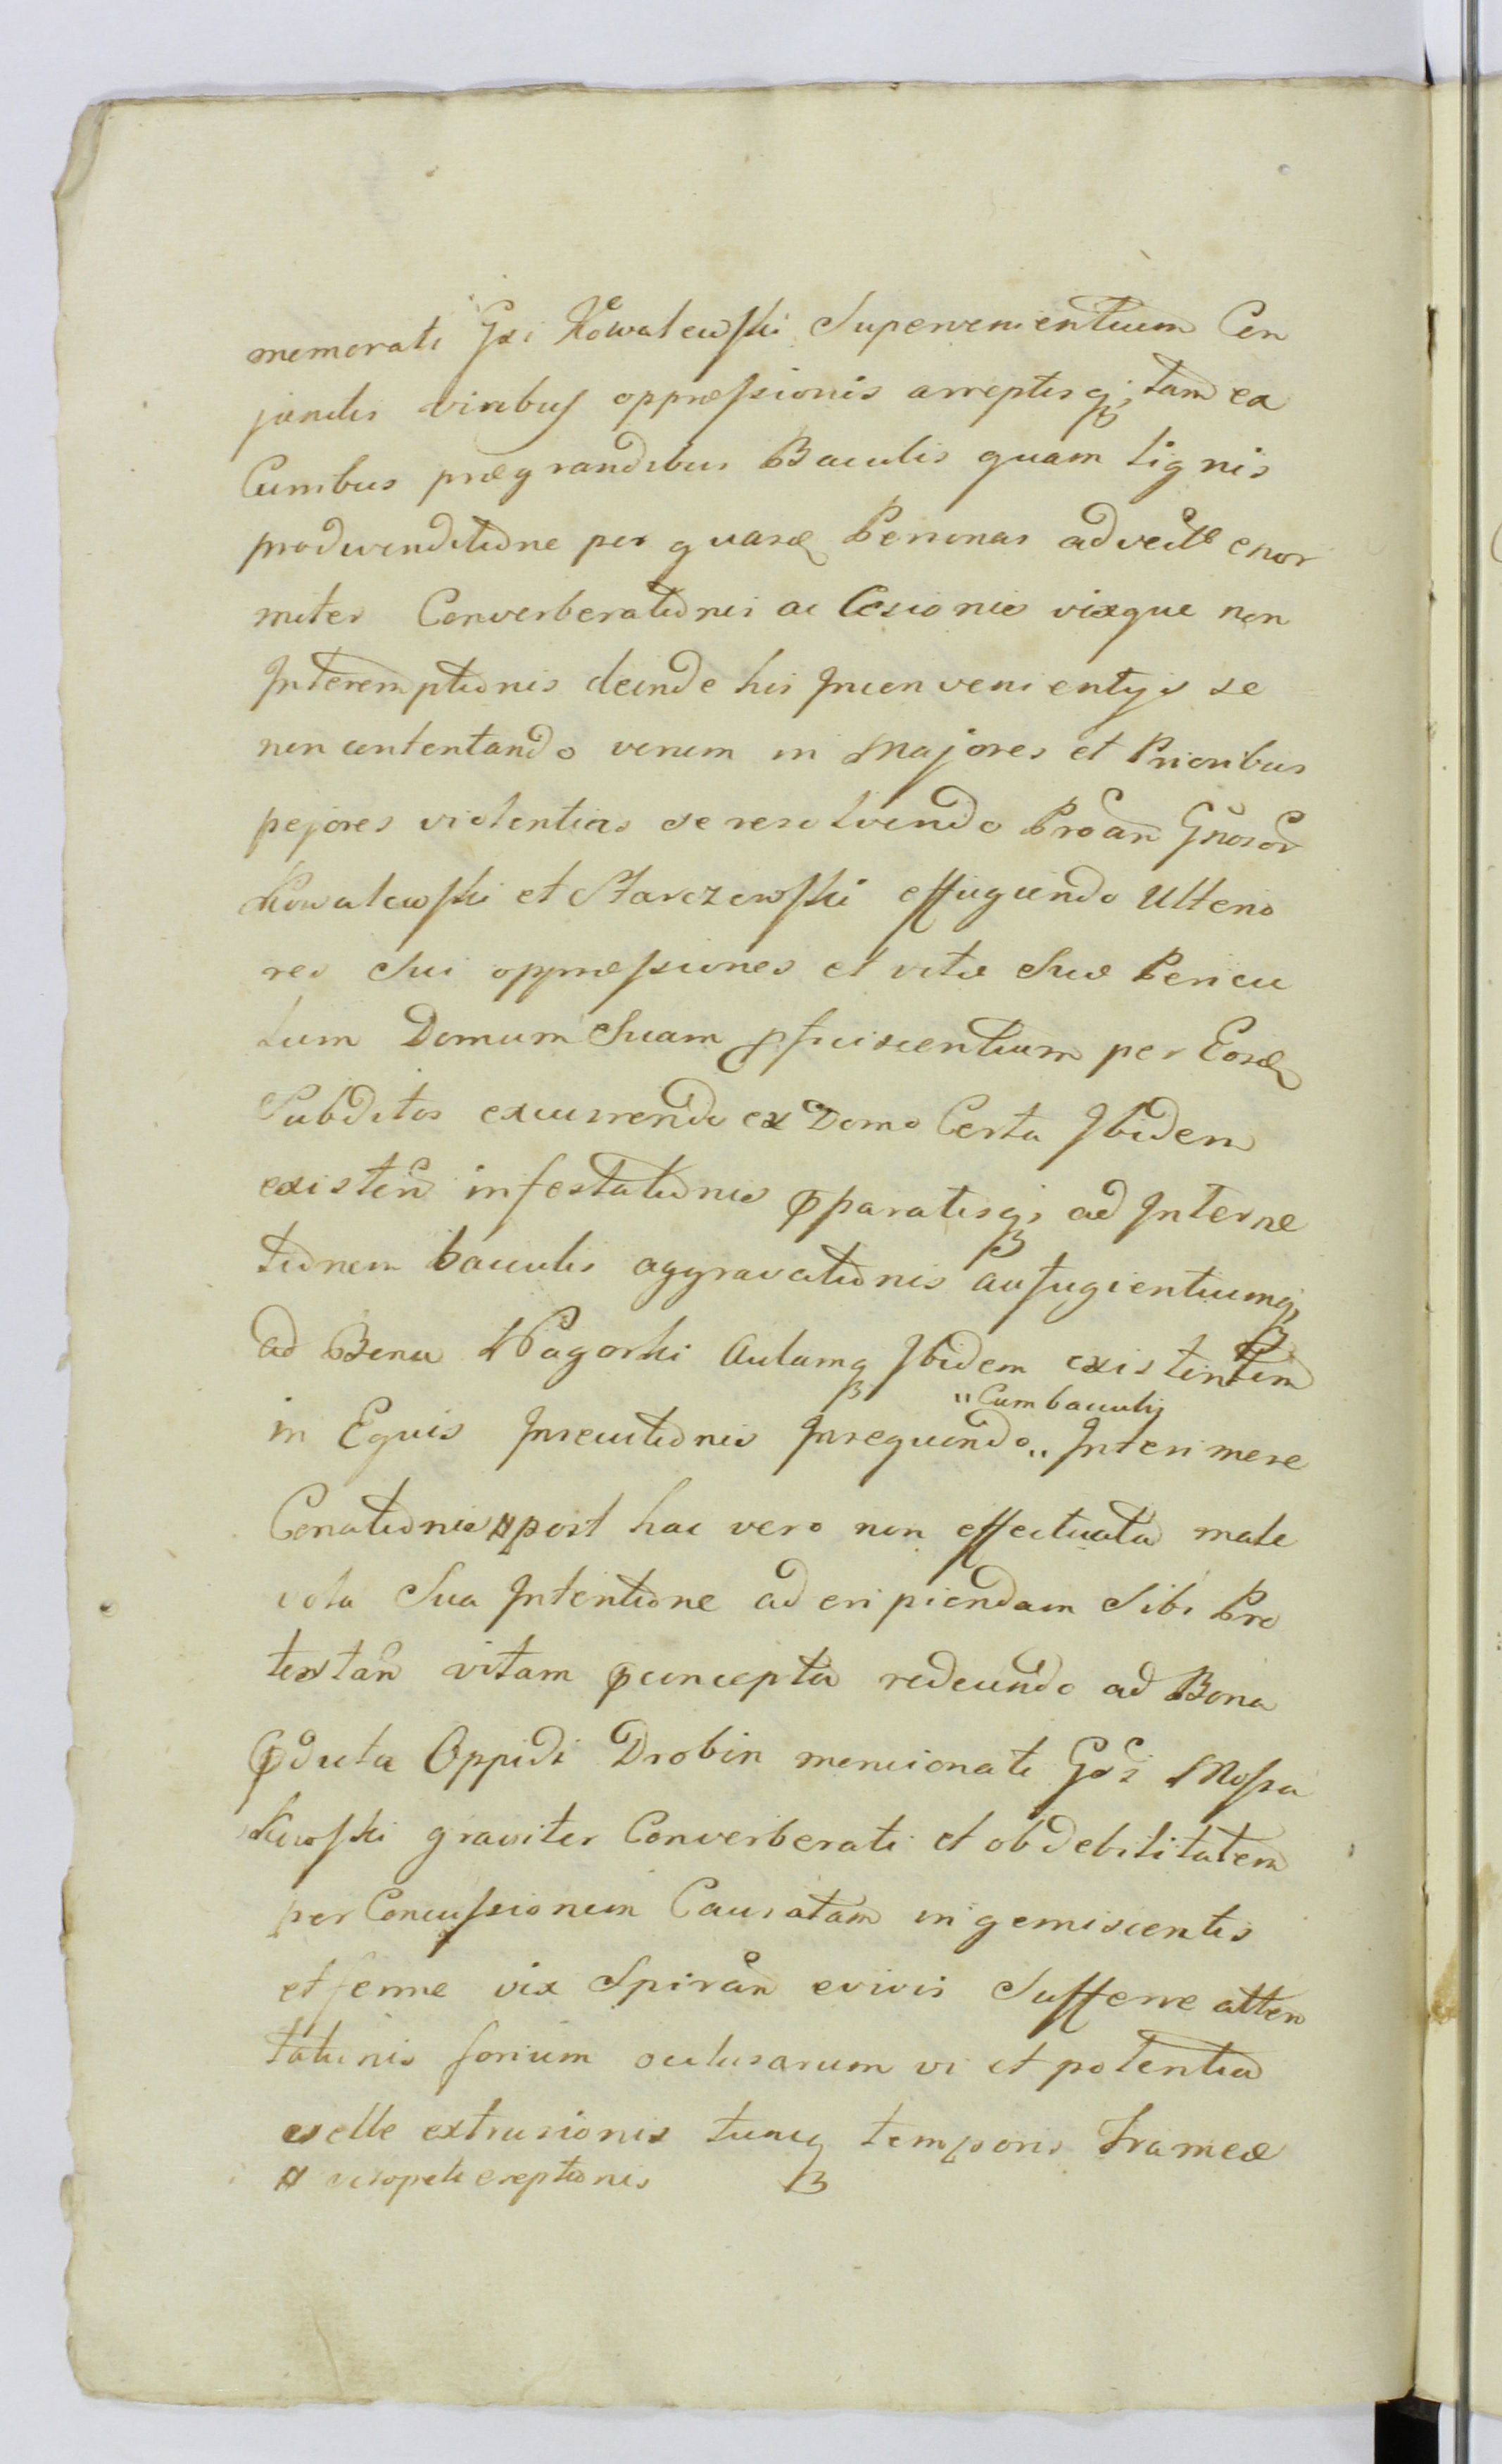 memorati Gsi Kowalewski Supervenientium Con
junctis viribus oppressionis arreptisq; tam ex
Cunibus prægrandibus Baculis quam lignis
per quasd Personas advecte enor
miter Converberationis ac Læsionis vixque non
Interemptionis deinde his Inconvenientijs se
non contentando verum in Majores et Prioribus
pejores violentias se resolvendo Protan Gnosor
Kowalewski et Starczewski effugiendo Ulterio
res Sui oppressiones et vitæ Suæ Pericu
lum Domum Suam pficiscentium per Eosd
Subditos excurrendo ex Domo Certa Ibidem
existen infestationis pparatisq; ad Interne
tionem baculis aggravationis aufugientiumq;
ad Bona Nagorki Aulamq Ibidem existentem
in Equis Insecutionis Insequendo „ Cum baculis „ Interimere
Conationis # post hac vero non effectuata male
vola Sua Intentione ad eripiendam Sibi Pro
testan vitam pconcepta redeundo ad Bona
pdicta Oppidi Drobin mencionati Gsi Mossa
kowski graviter Converberati et ob debilitatem
per Concussionem Causatam ingemiscentis
et ferme vix Spiran e vivis Sufferre atten
tationis forium oclusarum vi et potentia
evelle extrusionis tuncq temporis Frameæ
# ereptionis